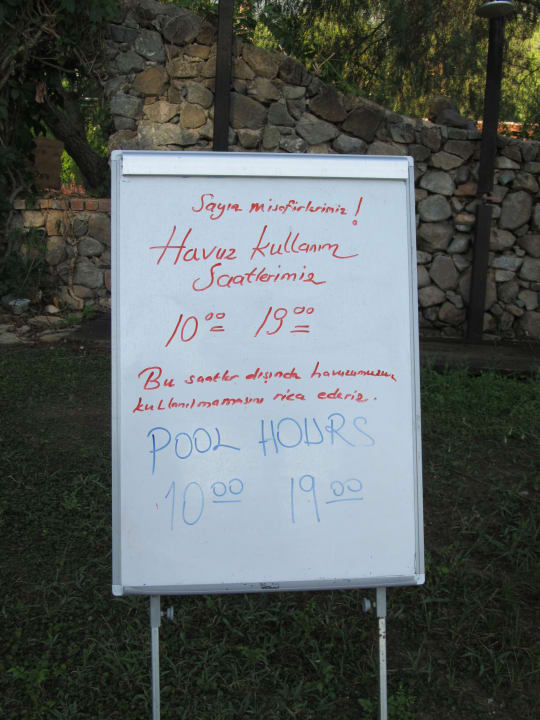 Sayın misafirlerimiz!
Havuz kullanım
Saatlerimiz
10⁰⁰ 19⁰⁰
Bu saatler dışında havuzumuzun
kullanılmamasını rica ederiz.
POOL HOURS
10⁰⁰ 19⁰⁰